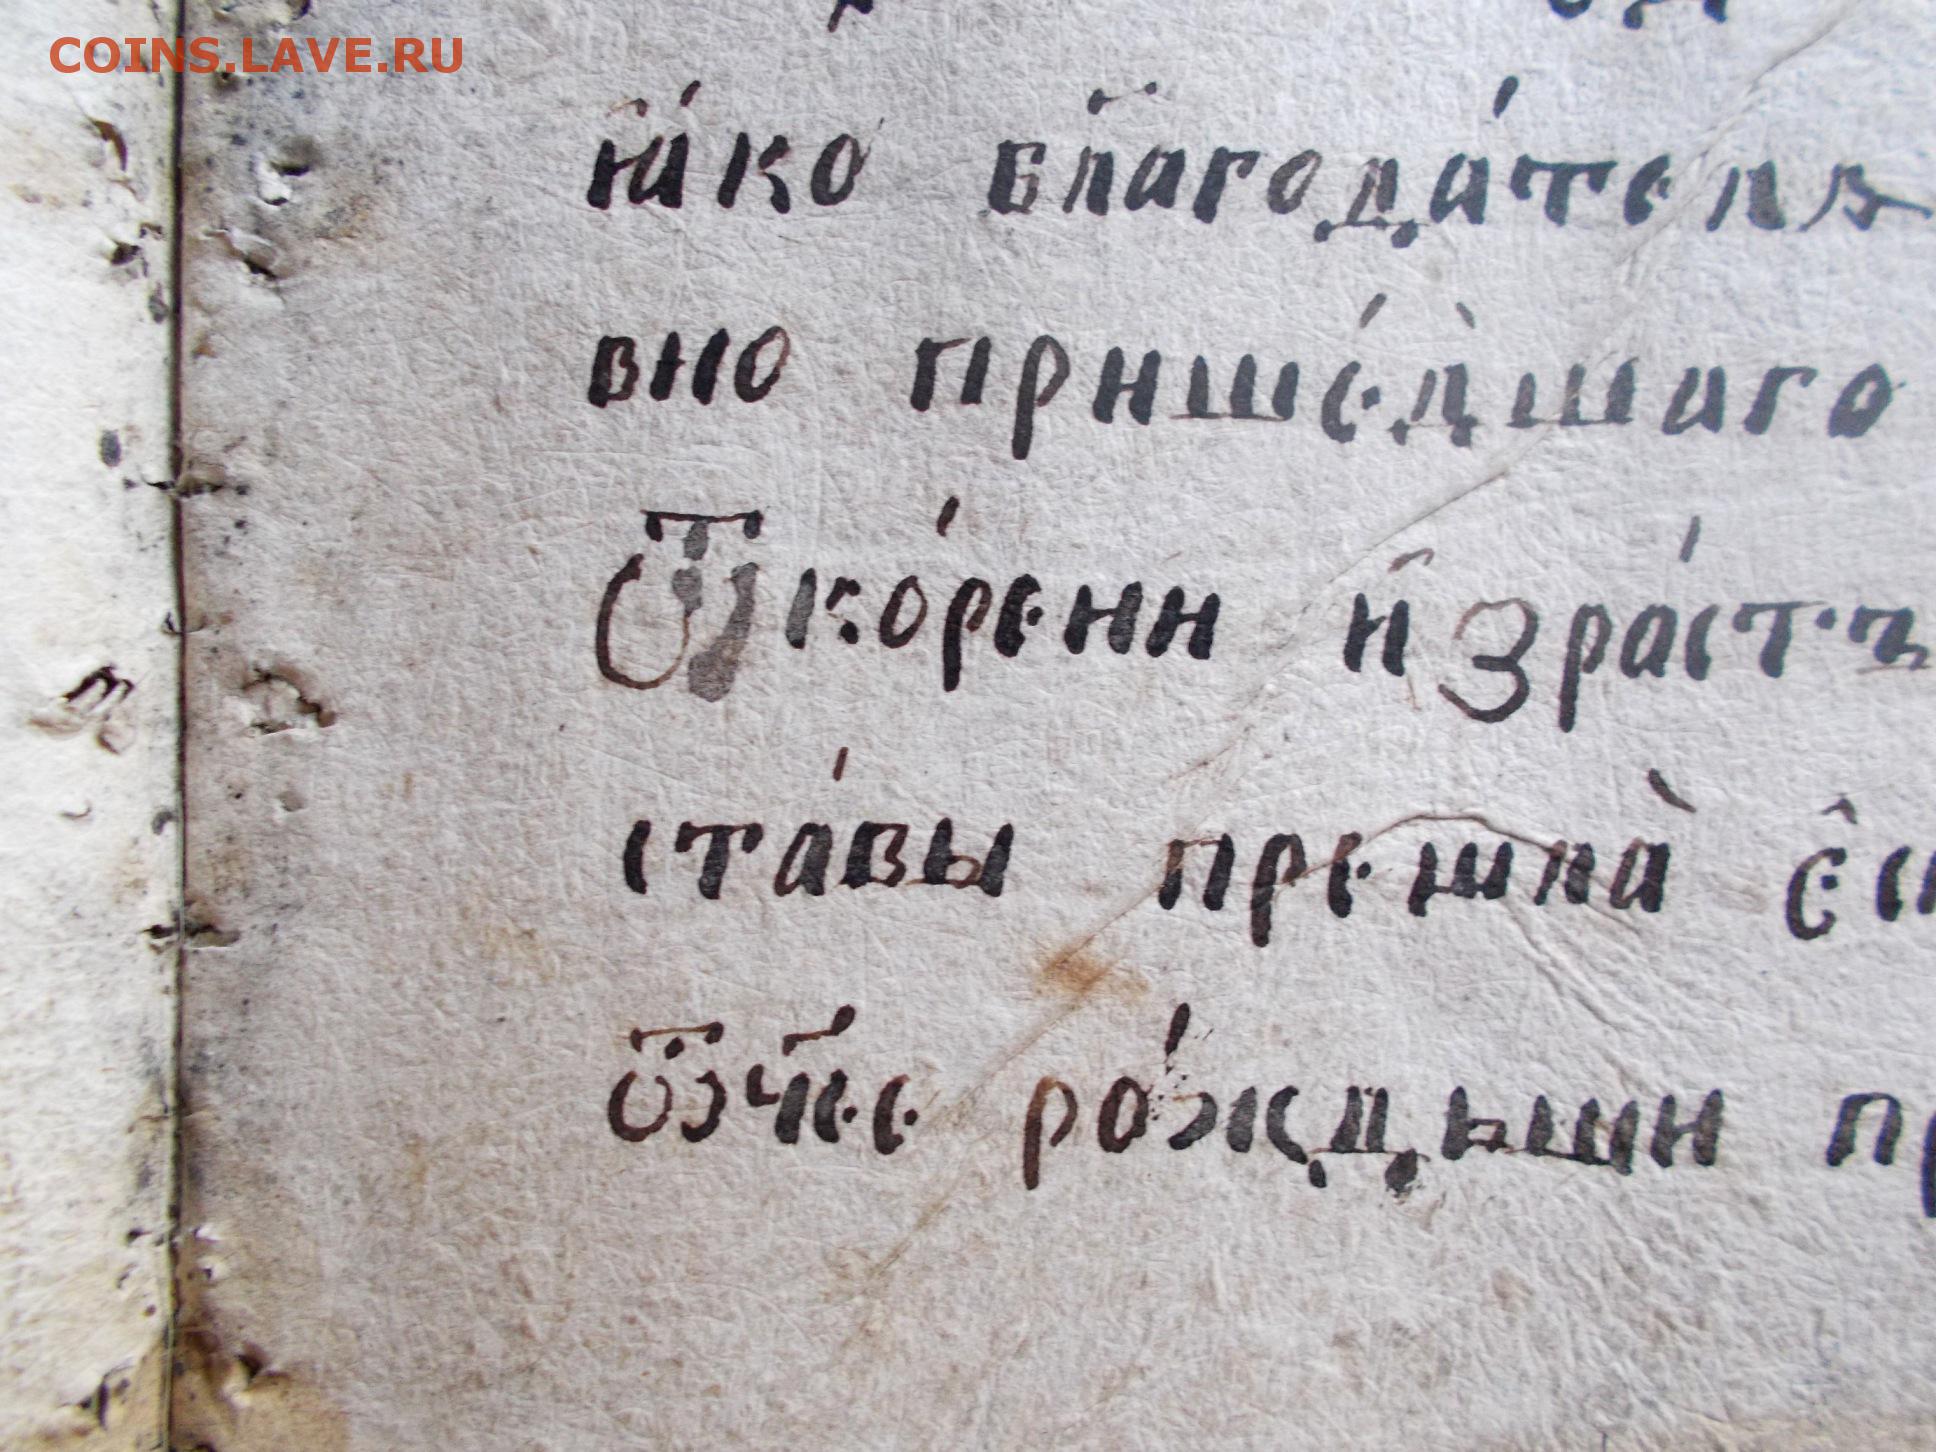 COINS.LAVE.RU
ꗗ҆́ко бл҃года́телѧ
вно прише́дшаго
Ѿ ко́рени и҆зра́стъ
ста́вы прешла̀ є҆си
ѿч҃ее ро́ждьши пр